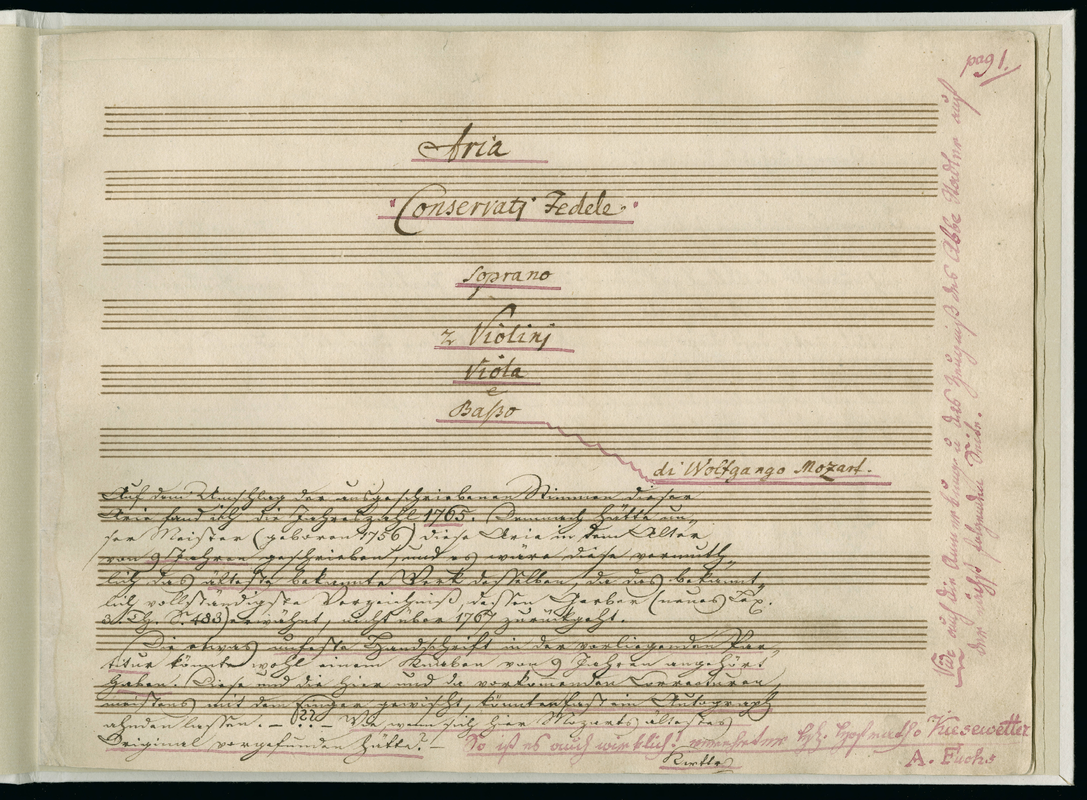 pag 1.
Aria
"Conservati Fedele"
Soprano
2 Violini
Viola
e
Baßo
di Wolfgango Mozart.
Auf dem Umschlag der ausgeschriebenen Stimmen dieser
Arie fand ich die Jahreszahl 1765. Demnach hätte un-
ser Meister (geboren 1756) diese Arie in dem Alter
von 9 Jahren geschrieben, und es wäre diese vermuth-
lich das älteste bekannte Werk desselben, da das bekannt-
lich vollständigste Verzeichniß, dessen Gerber (neues Lex.
3. Th. S. 483) erwähnt, nicht über 1767 zurückgeht.
Die etwas unfeste Handschrift in der vorliegenden Par-
titur könnte wohl einem Knaben von 9 Jahren angehört
haben. Diese und die hier und da vorkommenden Correcturen,
meistens mit dem Finger gewischt, könnten fast ein Autograph
ahnden lassen. — Wie? — Ja wenn sich hier Mozarts ältestes
Original vorgefunden hätte? —
So ist es auch wirklich! verehrter Hofrath Kiesewetter
A. Fuchs
Vide auf die Anmerkung u das Zeugniß des Abbe Stadler auf
der nächst folgenden Seite.